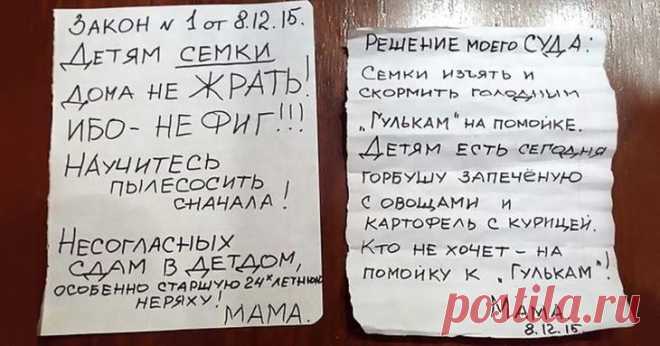 ЗАКОН N 1 ОТ 8.12.15.
ДЕТЯМ СЕМКИ
ДОМА НЕ ЖРАТЬ!
ИБО - НЕ ФИГ!!!
НАУЧИТЕСЬ
ПЫЛЕСОСИТЬ
СНАЧАЛА!
НЕСОГЛАСНЫХ
СДАМ В ДЕТДОМ,
ОСОБЕННО СТАРШУЮ 24х ЛЕТНЮЮ
НЕРЯХУ!
МАМА.
РЕШЕНИЕ МОЕГО СУДА:
СЕМКИ ИЗЪЯТЬ И
СКОРМИТЬ ГОЛОДНЫМ
„ГУЛЬКАМ" НА ПОМОЙКЕ.
ДЕТЯМ ЕСТЬ СЕГОДНЯ
ГОРБУШУ ЗАПЕЧЁНУЮ
С ОВОЩАМИ И
КАРТОФЕЛЬ С КУРИЦЕЙ.
КТО НЕ ХОЧЕТ - НА
ПОМОЙКУ К „ГУЛЬКАМ"!
МАМА
8.12.15.
postila.ru